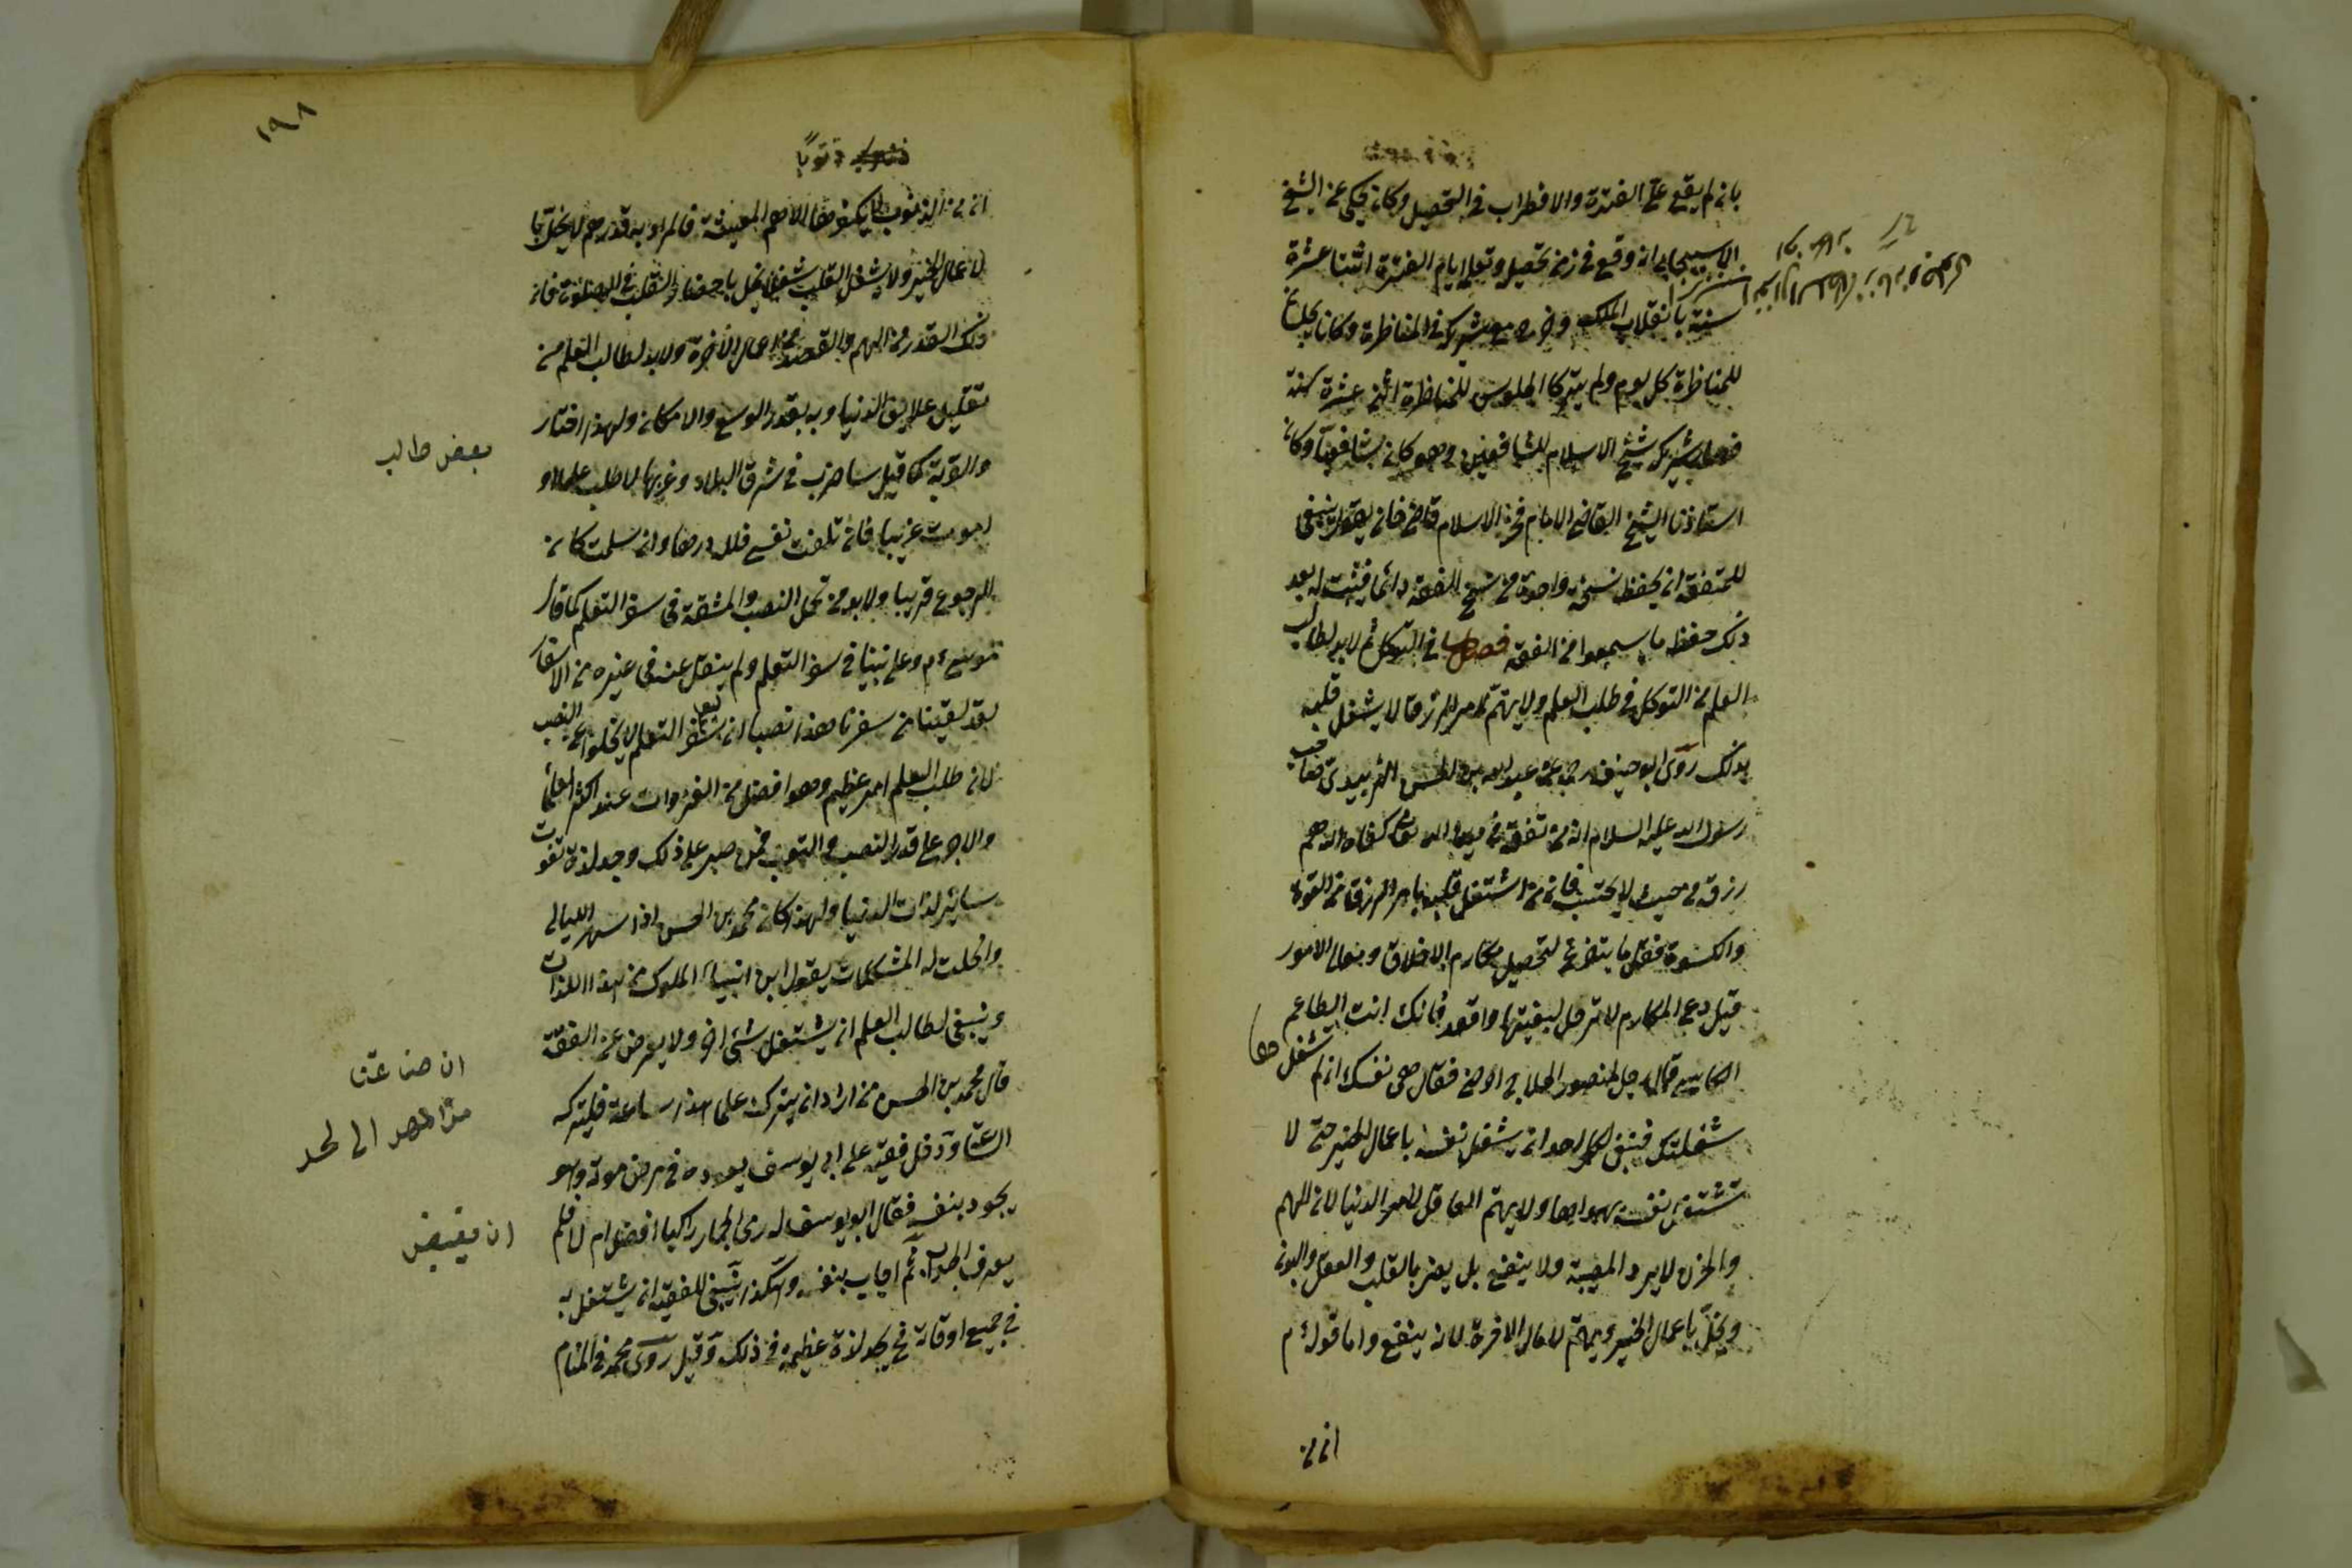 بانه لم يقع على الفترة والاضطراب في التحصيل وكان يحكى عن الشيخ
الاسبيجابي انه وقع في زمن تحصيل وتعلم ايام الفترة اثنتا عشرة
سنة بانقلاب الملك وخرج مع شريكه في المناظرة وكانا يجلسان
للمناظرة كل يوم ولم يتركا الجلوس للمناظرة اثنى عشرة سنة
فصار شريكه شيخ الاسلام للشافعيين وهو كان شافعيا وكان
استاذنا الشيخ القاضي الامام فخر الاسلام قاضي خان يقول ينبغي
للمتفقه ان يحفظ نسخة واحدة من نسخ الفقه دائما فيثبت له بعد
ذلك حفظ ما سمعوا من الفقه فصل في التوكل ثم لا بد لطالب
العلم من التوكل في طلب العلم ولا يهتم لامر الرزق لا يشغل قلبه
بذلك روى ابو حنيفة رح عن عبد الله بن الحسن الزبيدي صاحب
رسول الله عليه السلام ان من تفقه في دين الله تعالى كفاه الله هم
رزقه من حيث لا يحتسب فان من اشتغل قلبه بامر الرزق من القوة
والكسوة فقل ما يتفرغ لتحصيل مكارم الاخلاق ومعالى الامور
قيل دع المكارم لا ترحل لبغيتها واقعد فانك انت الطاعم
الكاسي قال رجل لمنصور الحلاج اوصنى فقال هى نفسك ان لم تشغلها
شغلتك فينبغي لكل احد ان يشغل نفسه باعمال الخير حتى لا
تشتغل نفسه بهواها ولا يهتم العاقل لامر الدنيا لان الهم
والحزن لا يرد المصيبة ولا ينفع بل يضر بالقلب والعقل والبدن
ويخل باعمال الخير ويهتم لاعمال الاخرة لانه ينفع واما قوله م
ان من
١٩٨
ان من الذنوب لا يكفرها الا هم المعيشة فالمراد به قدر هم لا يخل بها
لاعمال الخير ولا يشغل القلب شغلا يخل باحضار القلب في الصلوة فان
ذلك القدر من الهم والقصد من اعمال الاخرة ولا بد لطالب العلم من
تقليل علايق الدنيوية بقدر الوسع والامكان ولهذا اختار
بعض طالب
والقربة كما قيل ساضرب في شرق البلاد وغربها لاطلب علما او
اموت غريبا فان تلفت نفسي فلله درها وان سلمت كان
الرجوع قريبا ولا بد من تحمل النصب والمشقة في سفر التعلم كما قال
موسى ء م وعلى نبينا في سفر التعلم ولم ينقل عنه في غيره من الاسفار
لقد لقينا من سفرنا هذا نصبا ان سفر التعلم لا يخلوا عن النصب
لان طلب العلم امر عظيم وهو افضل من الغزوات عند اكثر العلماء
والاجر على قدر النصب والتعب فمن صبر على ذلك وجد لذة تفوت
سائر لذات الدنيا ولهذا كان محمد بن الحسن اذا سهر الليالي
وانحلت له المشكلات يقول اين ابنياء الملوك من هذا اللذات
وينبغي لطالب العلم ان يشتغل شئ اخر ولا يعرض عن الفقه
ان صناعتنا
قال محمد بن الحسن من اراد ان يترك علمنا هذا ساعة فليتركه
من المهد الى لحد
الساعة ودخل فقيه على ابى يوسف يعوده في مرض موته وهو
يجود بنفسه فقال ابو يوسف له رمى الجمار راكبا افضل ام لا فلم
يعرف الجواب ثم اجاب بنفسه وهكذا ينبغي للفقيه ان يشتغل به
في جميع اوقاته فح يجد لذة عظيمة في ذلك وقيل روى محمد في المنام